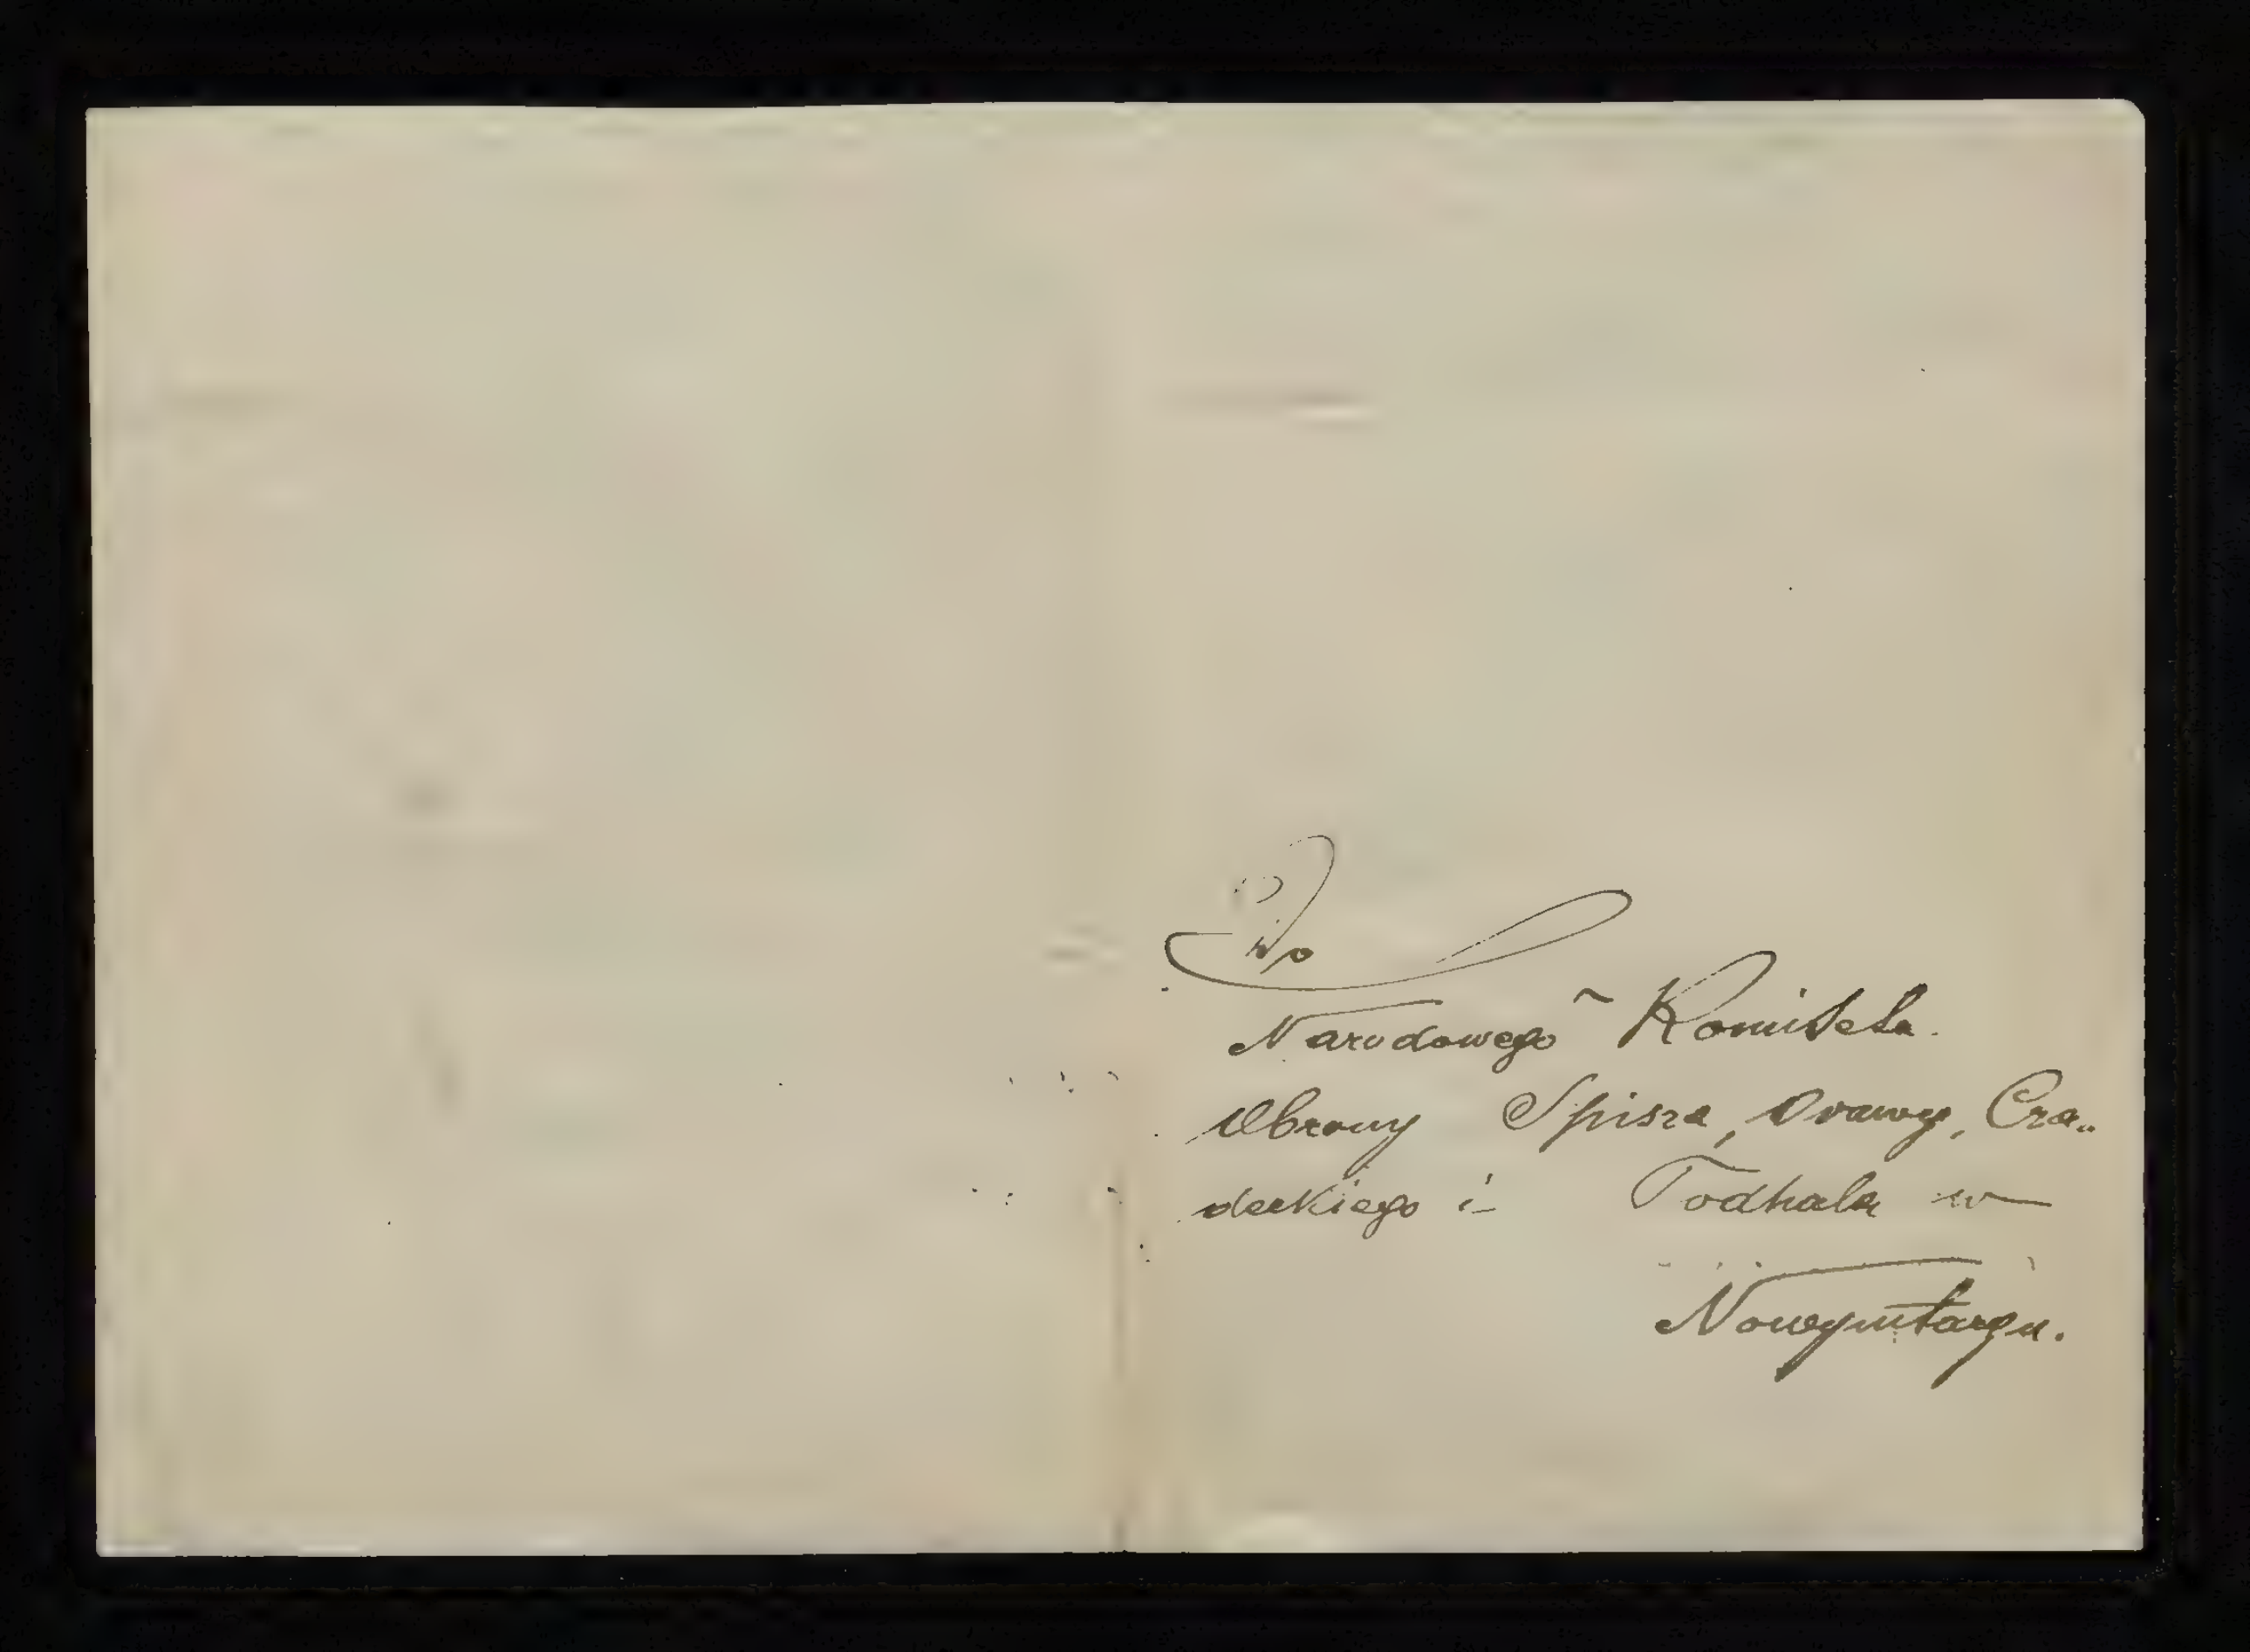 Do
Narodowego Komitetu
Obrony Spisza, Orawy, Cza„
deckiego i Podhala w
Nowymtargu.